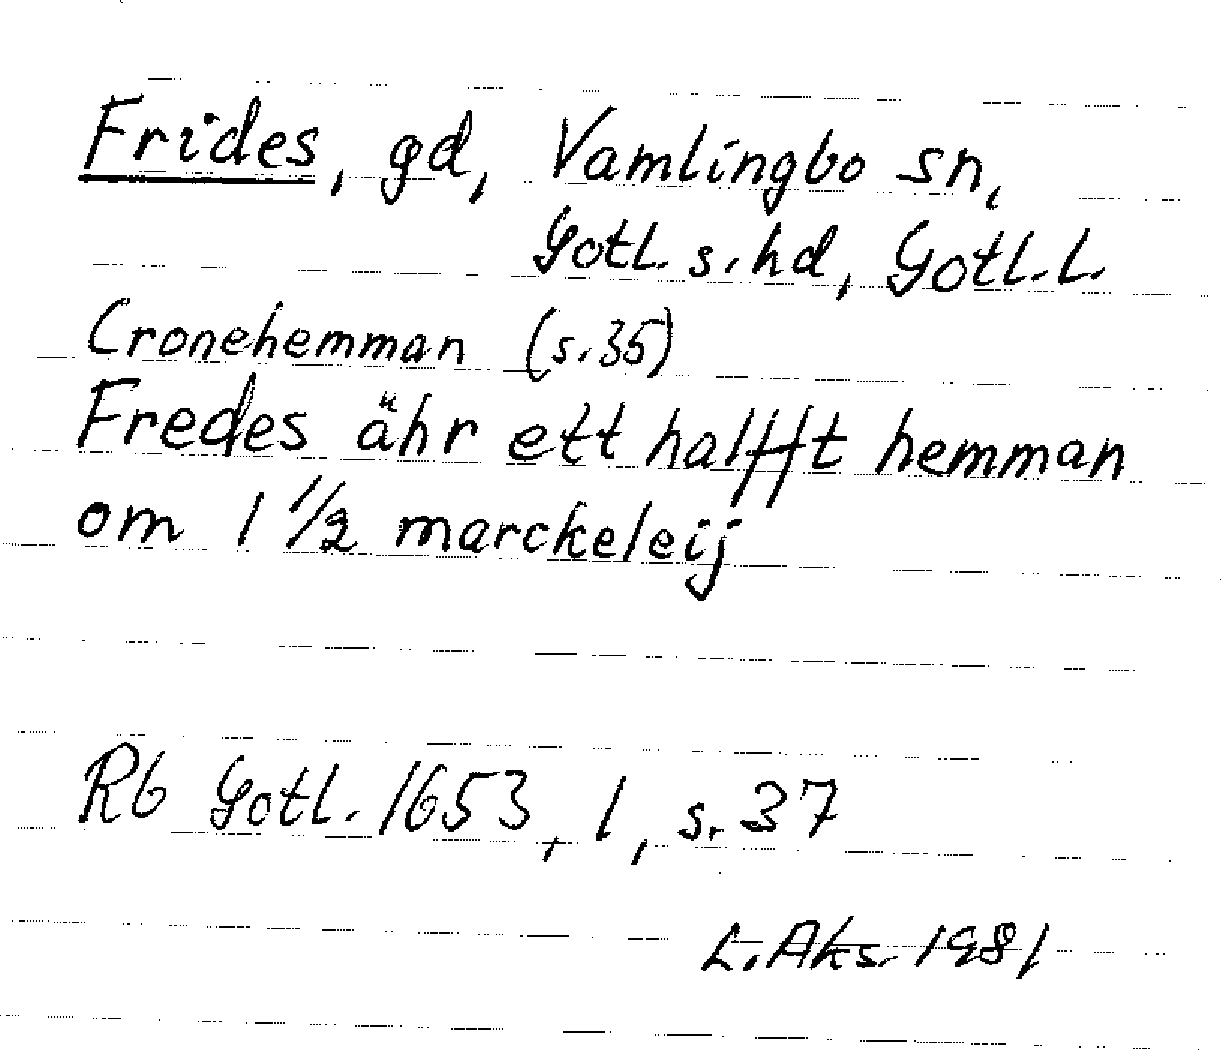 Frides, gd, Vamlingbo sn,
Gotl. s. hd, Gotl. L.
Cronehemman (s. 35)
Fredes ähr ett halfft hemman
om 1 1/2 marckeleij
Rb Gotl. 1653, 1, s. 37
L. Aks. 1981